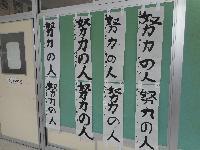 努力の人
努力の人
努力の人
努力の人
努力の人
努力の人
努力の人
努力の人